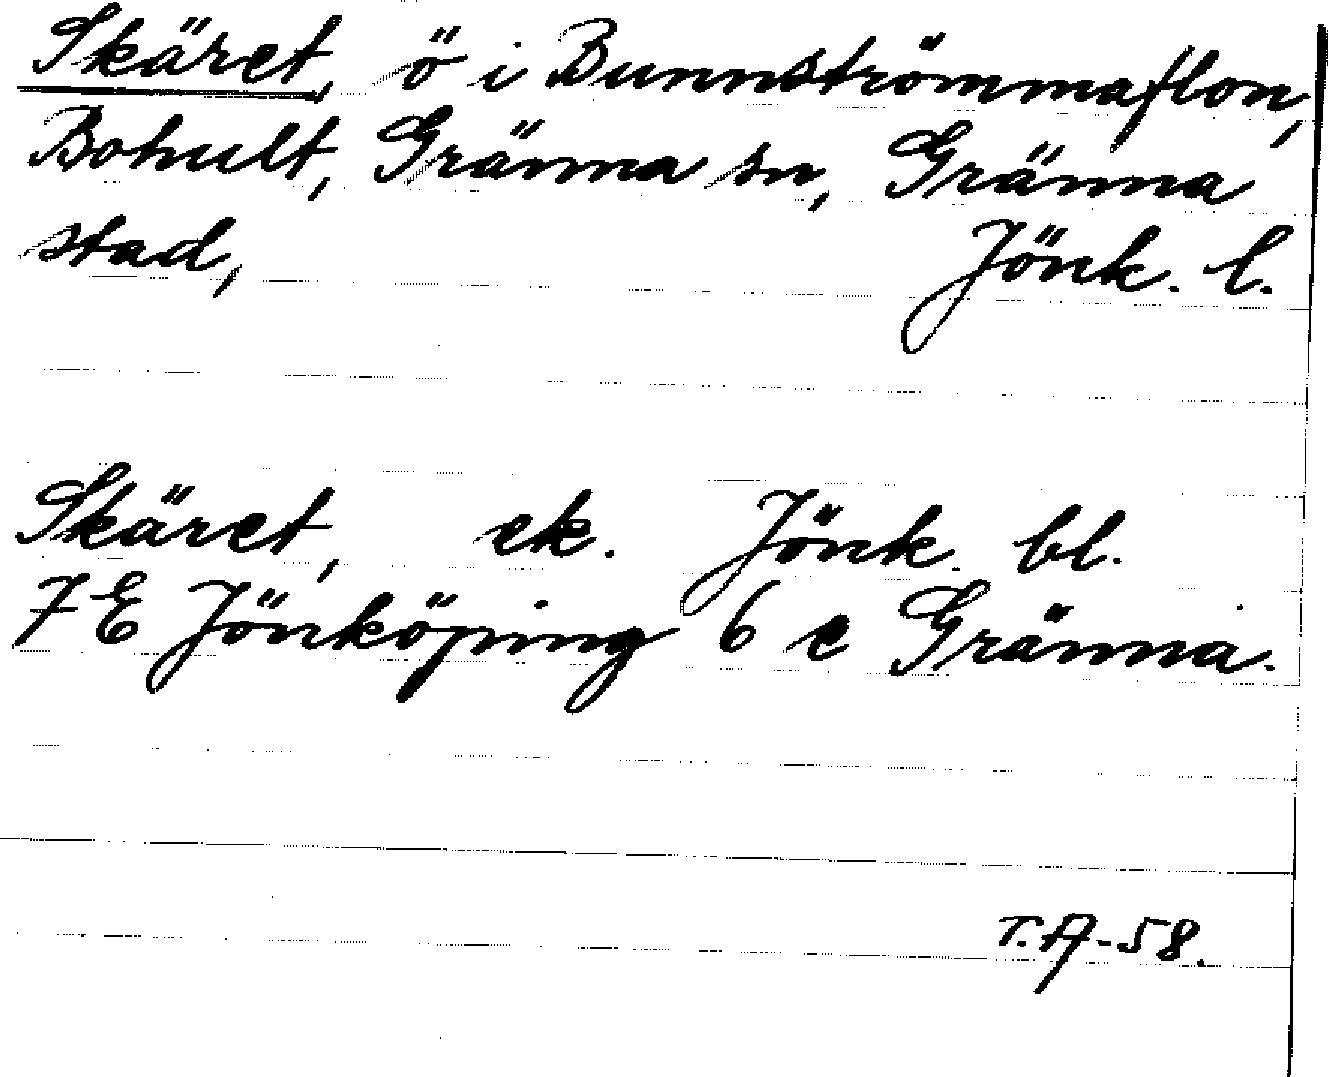 Skäret, ö i Bunnströmmaflon,
Bohult, Gränna sn, Gränna
stad, Jönk. l.
Skäret, ek. Jönk. bl.
7 E Jönköping 6 e Gränna.
T.A-58.